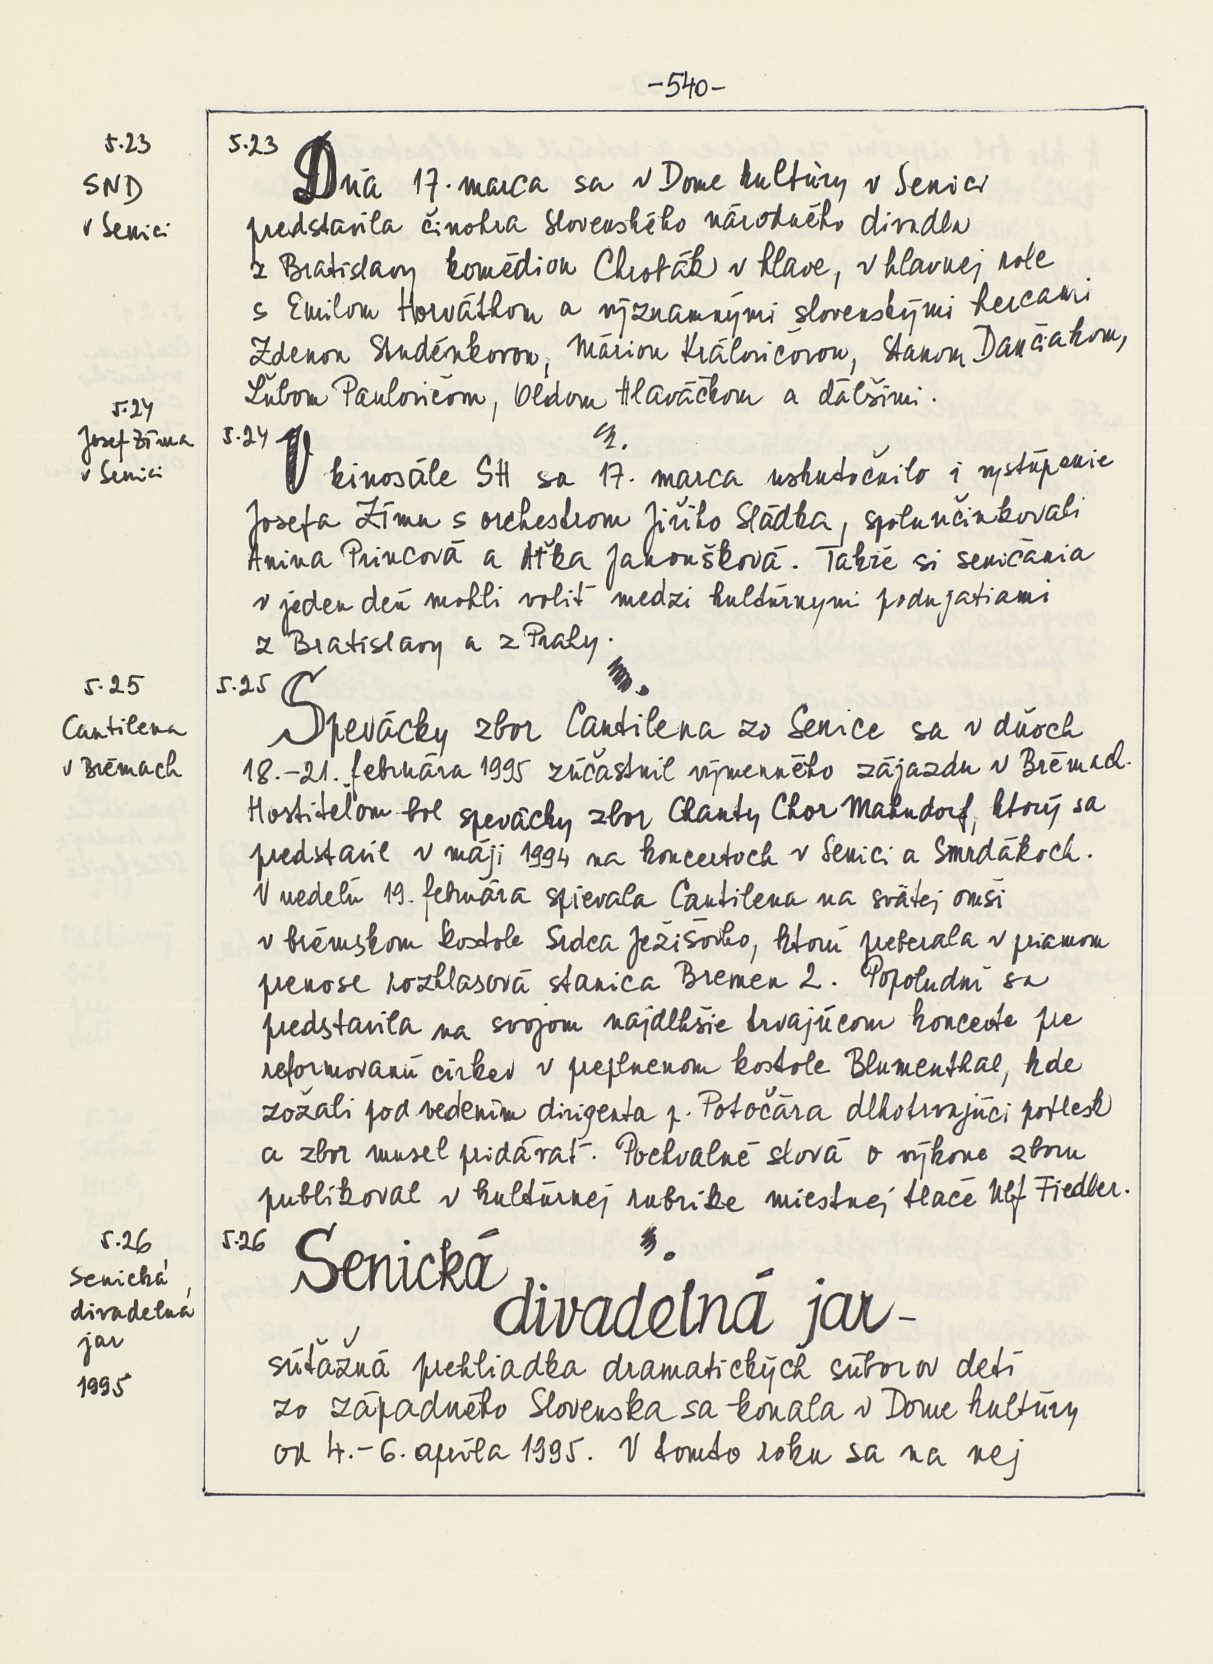 -540-
5.23
SND
v Senici
5.23
Dňa 17. marca sa v Dome kultúry v Senici
predstavila činohra Slovenského národného divadla
z Bratislavy komédiou Chrobák v hlave, v hlavnej role
s Emilom Horváthom a významnými slovenskými hercami
Zdenou Studénkovou, Máriou Kráľovičovou, Stanom Dančiakom,
Ľubom Paulovičom, Oldom Hlaváčkom a ďalšími.
5.24
Josef Zíma
v Senici
5.24
V kinosále SH sa 17. marca uskutočnilo i vystúpenie
Josefa Zímu s orchestrom Jiřího Sládka, spoluúčinkovali
Anina Princová a Aťka Janoušková. Takže si seničania
v jeden deň mohli voliť medzi kultúrnymi podujatiami
z Bratislavy a z Prahy.
5.25
Cantilena
v Brémach
5.25
Spevácky zbor Cantilena zo Senice sa v dňoch
18.-21. februára 1995 zúčastnil výmenného zájazdu v Brémach.
Hostiteľom bol spevácky zbor Chanty Chor Mahndorf, ktorý sa
predstavil v máji 1994 na koncertoch v Senici a Smrdákoch.
V nedeľu 19. februára spievala Cantilena na svätej omši
v brémskom kostole Srdca Ježišovho, ktorú preberala v priamom
prenose rozhlasová stanica Bremen 2. Popoludní sa
predstavila na svojom najdlhšie trvajúcom koncerte pre
reformovanú cirkev v preplnenom kostole Blumenthal, kde
zožali pod vedením dirigenta p. Potočára dlhotrvajúci potlesk
a zbor musel pridávať. Pochvalné slová o výkone zboru
publikoval v kultúrnej rubrike miestnej tlače Ulf Fiedler.
5.26
Senická
divadelná
jar
1995
5.26
Senická
divadelná jar -
súťažná prehliadka dramatických súborov detí
zo západného Slovenska sa konala v Dome kultúry
od 4.-6. apríla 1995. V tomto roku sa na nej